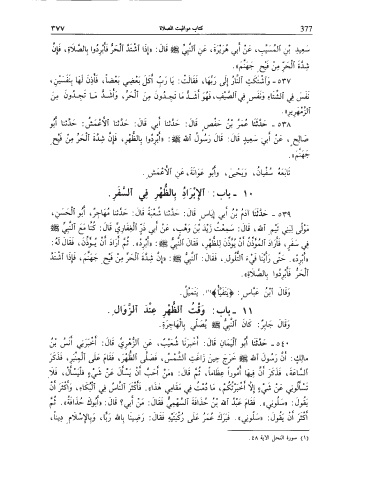 ٣٧٧ كتاب مواقيت الصلاة 377
سَعِيدِ بْنِ الْمُسَيَّبِ، عَنْ أَبِي هُرَيْرَةَ، عَنِ النَّبِيِّ ﷺ قَالَ: «إِذَا اشْتَدَّ الْحَرُّ فَأَبْرِدُوا بِالصَّلَاةِ، فَإِنَّ
شِدَّةَ الْحَرِّ مِنْ فَيْحِ جَهَنَّمَ».
٥٣٧ - وَاشْتَكَتِ النَّارُ إِلَى رَبِّهَا، فَقَالَتْ: يَا رَبِّ أَكَلَ بَعْضِي بَعْضاً، فَأَذِنَ لَهَا بِنَفَسَيْنِ،
نَفَسٍ فِي الشِّتَاءِ وَنَفَسٍ فِي الصَّيْفِ، فَهُوَ أَشَدُّ مَا تَجِدُونَ مِنَ الْحَرِّ، وَأَشَدُّ مَا تَجِدُونَ مِنَ
الزَّمْهَرِيرِ».
٥٣٨ - حَدَّثَنَا عُمَرُ بْنُ حَفْصٍ قَالَ: حَدَّثَنَا أَبِي قَالَ: حَدَّثَنَا الْأَعْمَشُ: حَدَّثَنَا أَبُو
صَالِحٍ، عَنْ أَبِي سَعِيدٍ قَالَ: قَالَ رَسُولُ اللَّهِ ﷺ: «أَبْرِدُوا بِالظُّهْرِ، فَإِنَّ شِدَّةَ الْحَرِّ مِنْ فَيْحِ
جَهَنَّمَ».
تَابَعَهُ سُفْيَانُ، وَيَحْيَى، وَأَبُو عَوَانَةَ، عَنِ الْأَعْمَشِ.
١٠ - باب: الْإِبْرَادِ بِالظُّهْرِ فِي السَّفَرِ.
٥٣٩ - حَدَّثَنَا آدَمُ بْنُ أَبِي إِيَاسٍ قَالَ: حَدَّثَنَا شُعْبَةُ قَالَ: حَدَّثَنَا مُهَاجِرٌ، أَبُو الْحَسَنِ،
مَوْلًى لِبَنِي تَيْمِ اللَّهِ، قَالَ: سَمِعْتُ زَيْدَ بْنَ وَهْبٍ، عَنْ أَبِي ذَرٍّ الْغِفَارِيِّ قَالَ: كُنَّا مَعَ النَّبِيِّ ﷺ
فِي سَفَرٍ، فَأَرَادَ الْمُؤَذِّنُ أَنْ يُؤَذِّنَ لِلظُّهْرِ، فَقَالَ النَّبِيُّ ﷺ: «أَبْرِدْ». ثُمَّ أَرَادَ أَنْ يُؤَذِّنَ، فَقَالَ لَهُ:
«أَبْرِدْ». حَتَّى رَأَيْنَا فَيْءَ التُّلُولِ، فَقَالَ النَّبِيُّ ﷺ: «إِنَّ شِدَّةَ الْحَرِّ مِنْ فَيْحِ جَهَنَّمَ، فَإِذَا اشْتَدَّ
الْحَرُّ فَأَبْرِدُوا بِالصَّلَاةِ».
وَقَالَ ابْنُ عَبَّاسٍ: ﴿يَتَفَيَّأُ﴾(١). يَتَمَيَّلُ.
١١ - باب: وَقْتُ الظُّهْرِ عِنْدَ الزَّوَالِ.
وَقَالَ جَابِرٌ: كَانَ النَّبِيُّ ﷺ يُصَلِّي بِالْهَاجِرَةِ.
٥٤٠ - حَدَّثَنَا أَبُو الْيَمَانِ قَالَ: أَخْبَرَنَا شُعَيْبٌ، عَنِ الزُّهْرِيِّ قَالَ: أَخْبَرَنِي أَنَسُ بْنُ
مَالِكٍ: أَنَّ رَسُولَ اللَّهِ ﷺ خَرَجَ حِينَ زَاغَتِ الشَّمْسُ، فَصَلَّى الظُّهْرَ، فَقَامَ عَلَى الْمِنْبَرِ، فَذَكَرَ
السَّاعَةَ، فَذَكَرَ أَنَّ فِيهَا أُمُوراً عِظَاماً، ثُمَّ قَالَ: «مَنْ أَحَبَّ أَنْ يَسْأَلَ عَنْ شَيْءٍ فَلْيَسْأَلْ، فَلَا
تَسْأَلُونِي عَنْ شَيْءٍ إِلَّا أَخْبَرْتُكُمْ، مَا دُمْتُ فِي مَقَامِي هَذَا». فَأَكْثَرَ النَّاسُ فِي الْبُكَاءِ، وَأَكْثَرَ أَنْ
يَقُولَ: «سَلُونِي». فَقَامَ عَبْدُ اللَّهِ بْنُ حُذَافَةَ السَّهْمِيُّ فَقَالَ: مَنْ أَبِي؟ قَالَ: «أَبُوكَ حُذَافَةُ». ثُمَّ
أَكْثَرَ أَنْ يَقُولَ: «سَلُونِي». فَبَرَكَ عُمَرُ عَلَى رُكْبَتَيْهِ فَقَالَ: رَضِينَا بِاللَّهِ رَبًّا، وَبِالْإِسْلَامِ دِيناً،
(١) سورة النحل الآية ٤٨.